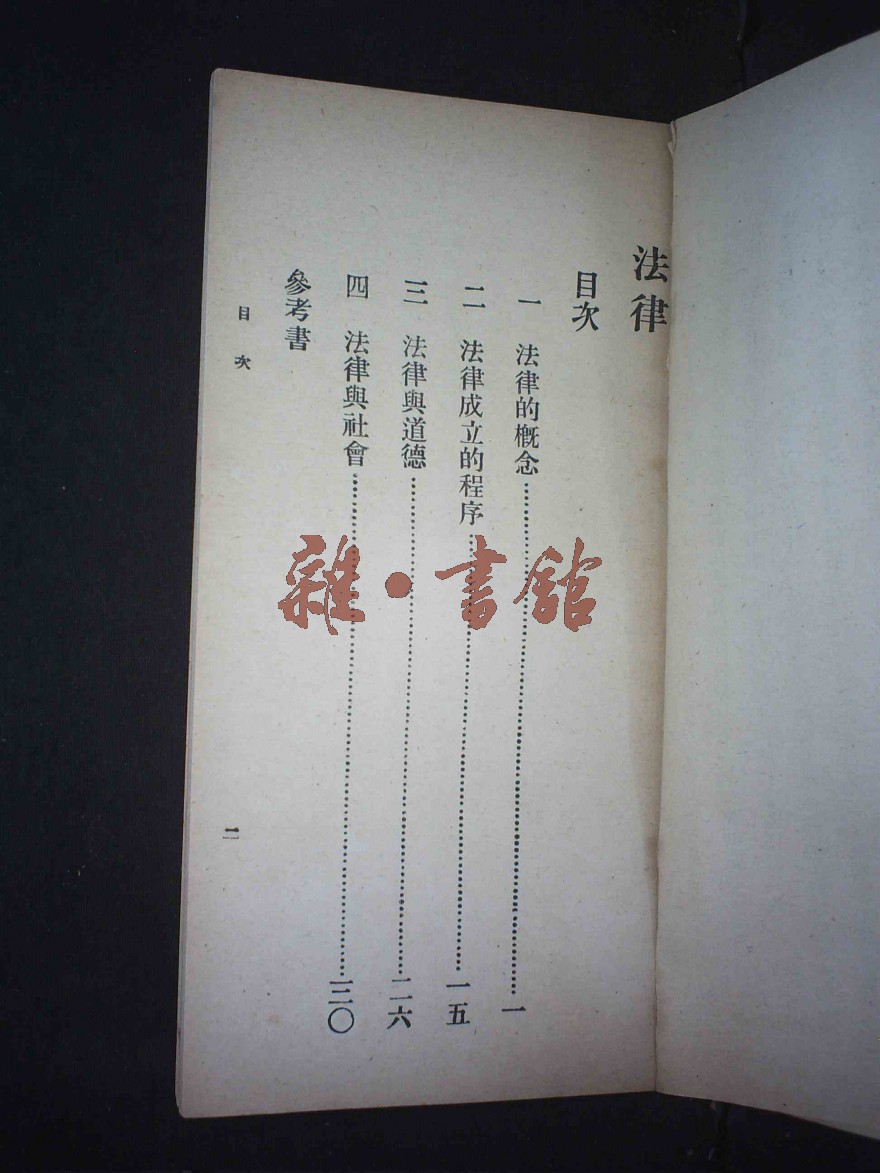 法律
目次
一 法律的概念……一
二 法律成立的程序……一五
三 法律與道德……二六
四 法律與社會……三〇
參考書
目次
二
雜·書館